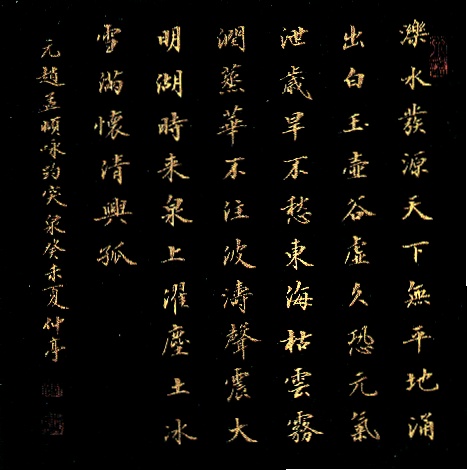 濼水發源天下無平地涌
出白玉壺谷虛久恐元氣
泄歲旱不愁東海枯雲霧
潤蒸華不注波濤聲震大
明湖時来泉上濯塵土冰
雪滿懷清興孤
元趙孟頫咏趵突泉癸未夏仲亭